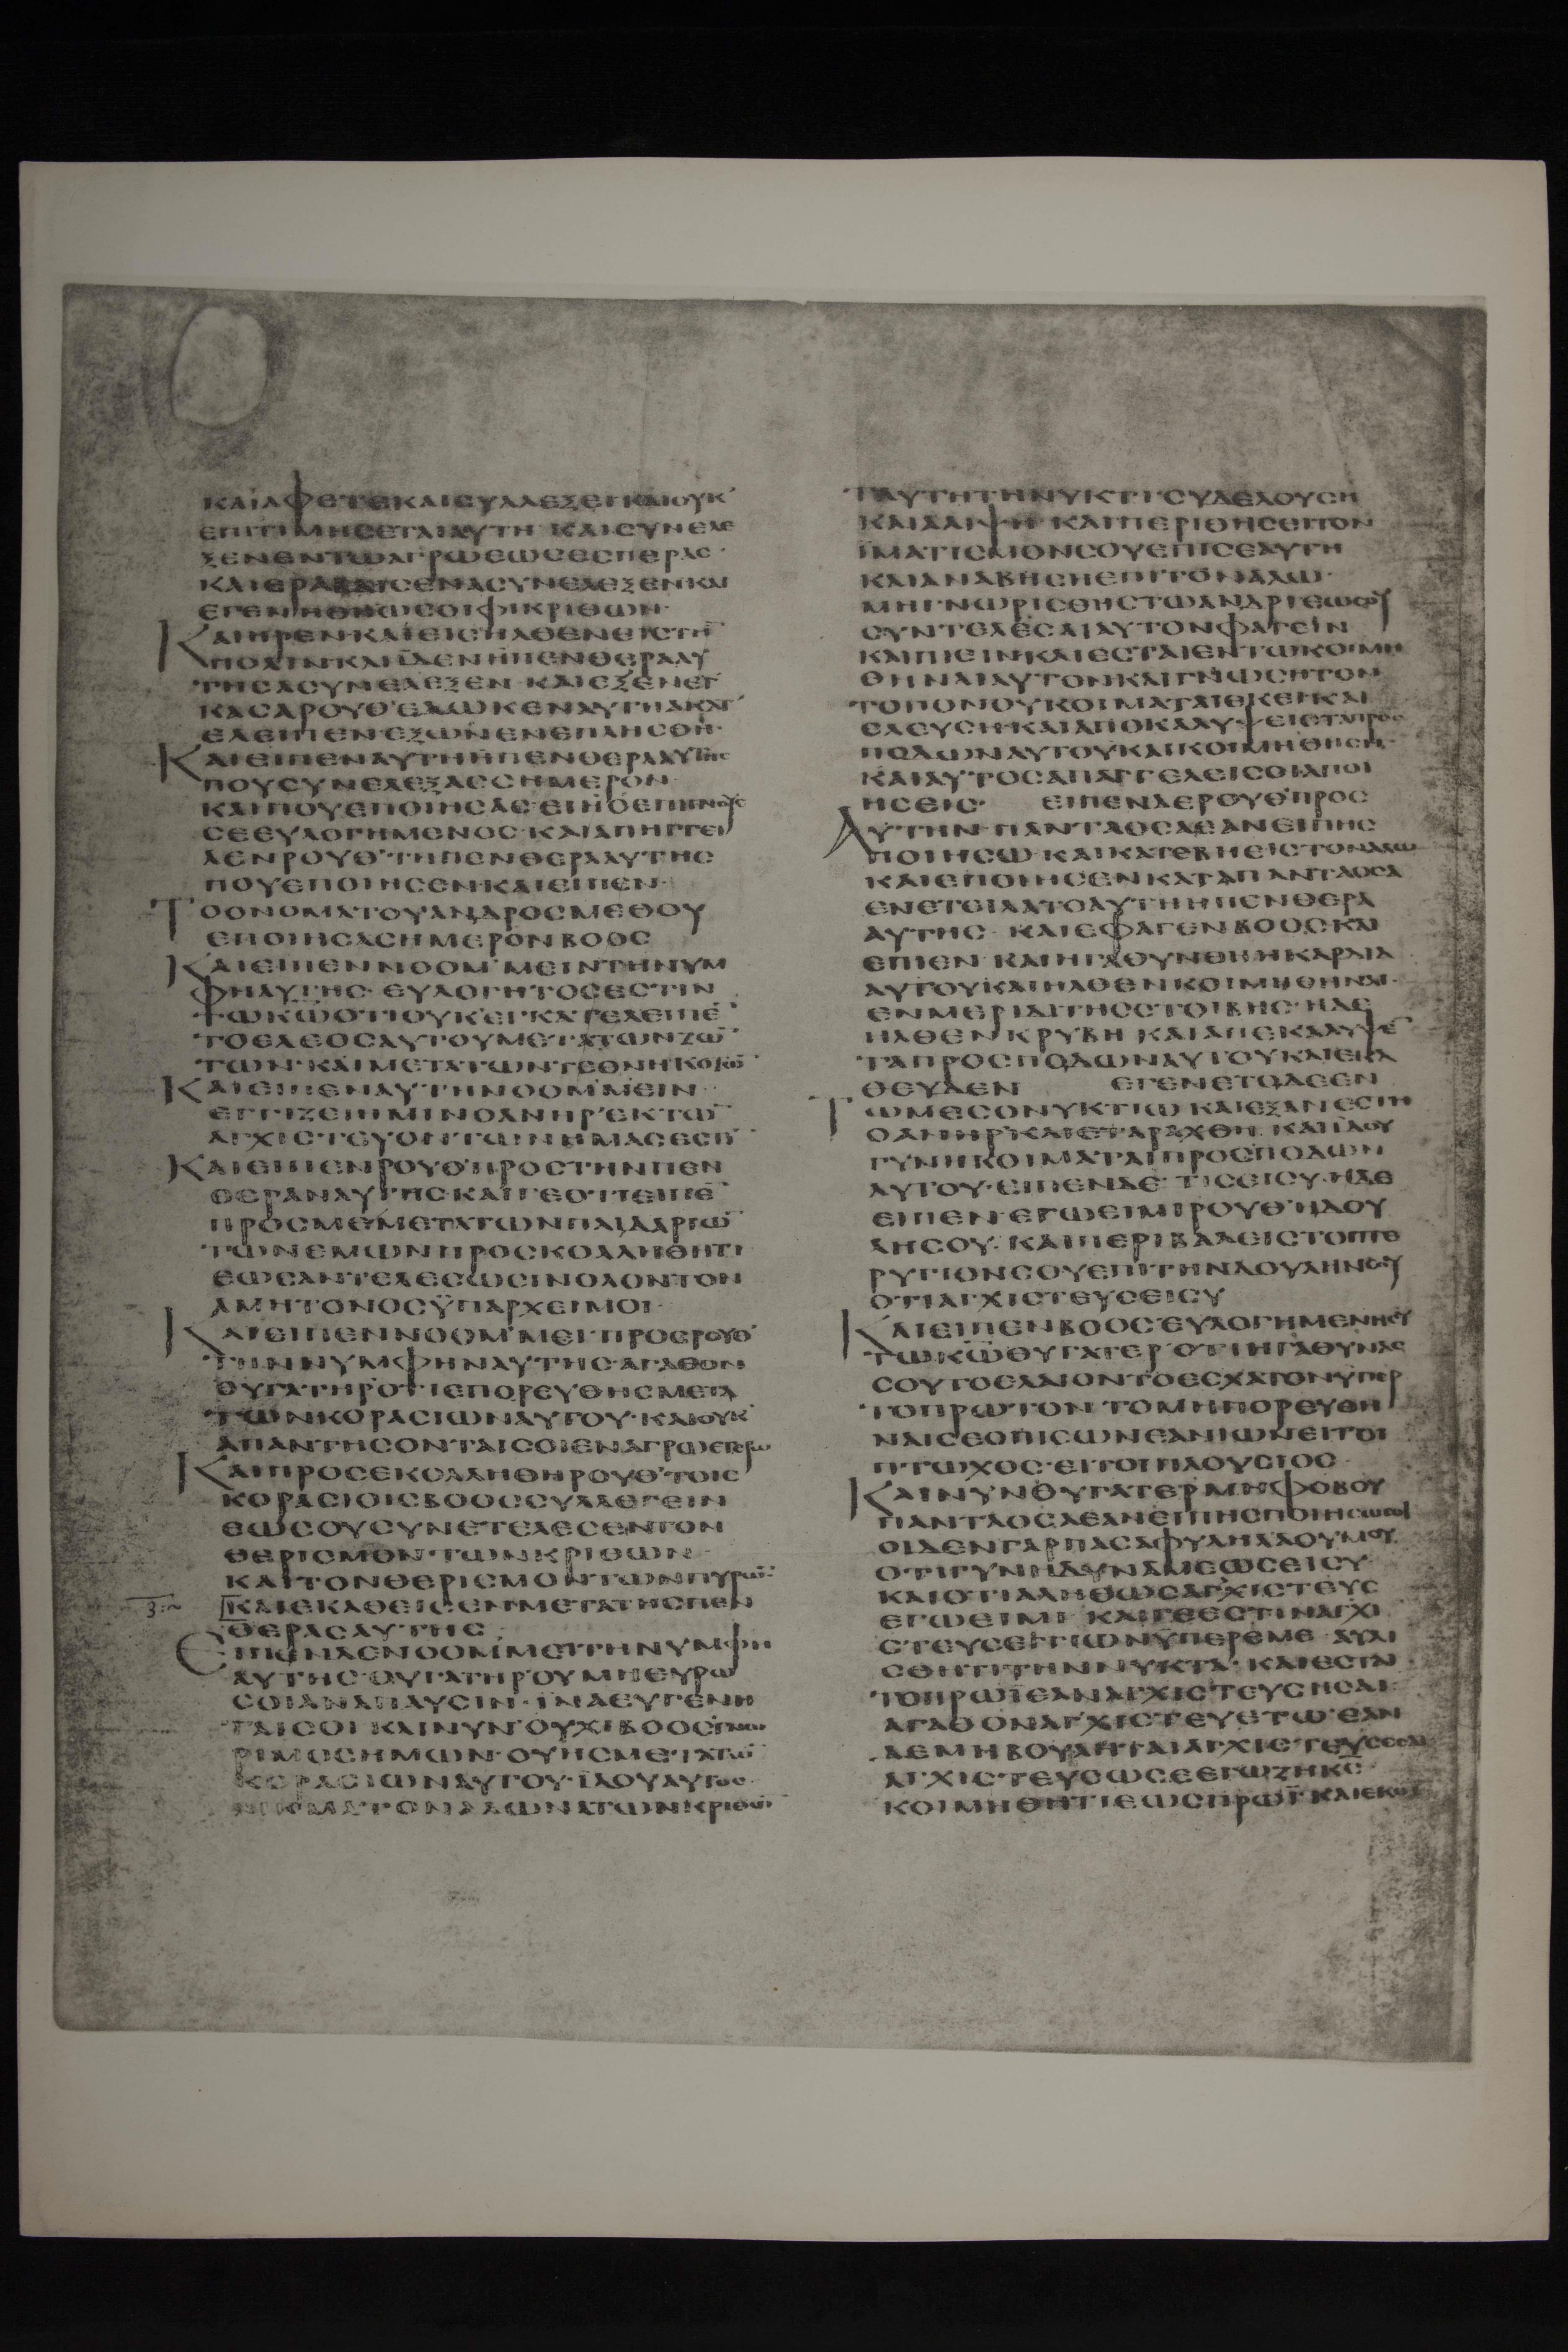 ΚΑΙΑΦΕΤΕΚΑΙΣΥΛΛΕΞΕΙΚΑΙΟΥΚ
ΕΠΙΤΙΜΗΣΕΤΑΙΑΥΤΗ ΚΑΙΣΥΝΕΛΕ
ΞΕΝΕΝΤΩΑΓΡΩΕΩΣΕΣΠΕΡΑΣ·
ΚΑΙΕΡΑΒΔΙΣΕΝΑΣΥΝΕΛΕΞΕΝΚΑΙ
ΕΓΕΝΗΘΗΩΣΟΙΦΙΚΡΙΘΩΝ·
ΚΑΙΗΡΕΝΚΑΙΕΙΣΗΛΘΕΝΕΙΣΤΗ̅
ΠΟΛΙΝ·ΚΑΙΪΔΕΝΗΠΕΝΘΕΡΑΑΥ
ΤΗΣΑΣΥΝΕΛΕΞΕΝ·ΚΑΙΕΞΕΝΕΓ
ΚΑΣΑΡΟΥΘ᾽ΕΔΩΚΕΝΑΥΤΗΑΚΑΤ
ΕΛΕΙΠΕΝ·ΕΞΩΝΕΝΕΠΛΗΣΘΗ·
ΚΑΙΕΙΠΕΝΑΥΤΗΗΠΕΝΘΕΡΑΑΥΤΗΣ
ΠΟΥΣΥΝΕΛΕΞΑΣΣΗΜΕΡΟΝ·
ΚΑΙΠΟΥΕΠΟΙΗΣΑΣ·ΕΙΗΟΕΠΙΓΝΟΥΣ
ΣΕΕΥΛΟΓΗΜΕΝΟΣ·ΚΑΙΑΠΗΓΓΕΙ
ΛΕΝΡΟΥΘ᾽ΤΗΠΕΝΘΕΡΑΑΥΤΗΣ
ΠΟΥΕΠΟΙΗΣΕΝ·ΚΑΙΕΙΠΕΝ·
ΤΟΟΝΟΜΑΤΟΥΑΝΔΡΟΣΜΕΘΟΥ
ΕΠΟΙΗΣΑΣΗΜΕΡΟΝΒΟΟΣ
ΚΑΙΕΙΠΕΝΝΟΟΜ᾽ΜΕΙΝΤΗΝΥΜ
ΦΗΑΥΤΗΣ·ΕΥΛΟΓΗΤΟΣΕΣΤΙΝ
ΤΩΚ̅Ω̅ΟΤΙΟΥΚΕΓΚΑΤΕΛΕΙΠΕ̅
ΤΟΕΛΕΟΣΑΥΤΟΥΜΕΤΑΤΩΝΖΩ̅
ΤΩΝ·ΚΑΙΜΕΤΑΤΩΝΤΕΘΝΗΚΟΤΩ̅
ΚΑΙΕΙΠΕΝΑΥΤΗΝΟΟΜΜΕΙΝ·
ΕΓΓΙΖΕΙΗΜΙΝΟΑΝΗΡ᾽ΕΚΤΩ̅
ΑΓΧΙΣΤΕΥΟΝΤΩΝΗΜΑΣΕΣΤΙ̅
ΚΑΙΕΙΠΕΝΡΟΥΘ᾽ΠΡΟΣΤΗΝΠΕΝ
ΘΕΡΑΝΑΥΤΗΣΚΑΙΓΕΟΤΙΕΙΠΕ̅
ΠΡΟΣΜΕΜΕΤΑΤΩΝΠΑΙΔΑΡΙΩ̅
ΤΩΝΕΜΩΝΠΡΟΣΚΟΛΛΗΘΗΤΙ
ΕΩΣΑΝΤΕΛΕΣΩΣΙΝΟΛΟΝΤΟΝ
ΑΜΗΤΟΝΟΣΫΠΑΡΧΕΙΜΟΙ·
ΚΑΙΕΙΠΕΝΝΟΟΜ᾽ΜΕΙ·ΠΡΟΣΡΟΥΘ᾽
ΤΗΝΝΥΜΦΗΝΑΥΤΗΣ·ΑΓΑΘΟΝ
ΘΥΓΑΤΗΡΟΤΙΕΠΟΡΕΥΘΗΣΜΕΤΑ
ΤΩΝΚΟΡΑΣΙΩΝΑΥΤΟΥ·ΚΑΙΟΥΚ
ΑΠΑΝΤΗΣΟΝΤΑΙΣΟΙΕΝΑΓΡΩΕΤΕΡΩ
ΚΑΙΠΡΟΣΕΚΟΛΛΗΘΗΡΟΥΘ᾽ΤΟΙΣ
ΚΟΡΑΣΙΟΙΣΒΟΟΣΣΥΛΛΕΓΕΙΝ
ΕΩΣΟΥΣΥΝΕΤΕΛΕΣΕΝΤΟΝ
ΘΕΡΙΣΜΟΝ·ΤΩΝΚΡΙΘΩΝ·
ΚΑΙΤΟΝΘΕΡΙΣΜΟΝΤΩΝΠΥΡΩ̅·
ΚΑΙΕΚΑΘΕΙΣΕΝΜΕΤΑΤΗΣΠΕΝ
ΘΕΡΑΣΑΥΤΗΣ
ΕΙΠΕΝΔΕΝΟΟΜΜΕΙΤΗΝΥΜΦΗ
ΑΥΤΗΣ·ΘΥΓΑΤΗΡ᾽ΟΥΜΗΕΥΡΩ
ΣΟΙΑΝΑΠΑΥΣΙΝ·ΪΝΑΕΥΓΕΝΗ
ΤΑΙΣΟΙ·ΚΑΙΝΥΝ᾽ΟΥΧΙΒΟΟΣΓΝΩ
ΡΙΜΟΣΗΜΩΝ·ΟΥΗΣΜΕΤΑΤΩ̅
ΚΟΡΑΣΙΩΝΑΥΤΟΥ·ΪΔΟΥΑΥΤΟΣ
ΛΙΚΜΑΤΟΝΑΛΩΝΑΤΩΝΚΡΙΘΩ̅
ΤΑΥΤΗΤΗΝΥΚΤΙ·ΣΥΔΕΛΟΥΣΗ
ΚΑΙΑΛΙΨΗ·ΚΑΙΠΕΡΙΘΗΣΕΙΤΟΝ
ΪΜΑΤΙΣΜΟΝΣΟΥΕΠΙΣΕΑΥΤΗ
ΚΑΙΑΝΑΒΗΣΗΕΠΙΤΟΝΑΛΩ·
ΜΗΓΝΩΡΙΣΘΗΣΤΩΑΝΔΡΙΕΩΣΟΥ
ΣΥΝΤΕΛΕΣΑΙΑΥΤΟΝΦΑΓΕΙΝ
ΚΑΙΠΙΕΙΝ·ΚΑΙΕΣΤΑΙΕΝΤΩΚΟΙΜΗ
ΘΗΝΑΙΑΥΤΟΝΚΑΙΓΝΩΣΗΤΟΝ
ΤΟΠΟΝΟΥΚΟΙΜΑΤΑΙΕΚΕΙ·ΚΑΙ
ΕΛΕΥΣΗ·ΚΑΙΑΠΟΚΑΛΥΨΕΙΣΤΑΠΡΟΣ
ΠΟΔΩΝΑΥΤΟΥΚΑΙΚΟΙΜΗΘΗΣΗ·
ΚΑΙΑΥΤΟΣΑΠΑΓΓΕΛΕΙΣΟΙΑΠΟΙ
ΗΣΕΙΣ· ΕΙΠΕΝΔΕΡΟΥΘ᾽ΠΡΟΣ
ΑΥΤΗΝ·ΠΑΝΤΑΟΣΑΕΑΝΕΙΠΗΣ
ΠΟΙΗΣΩ·ΚΑΙΚΑΤΕΒΗΕΙΣΤΟΝΑΛΩ
ΚΑΙΕΠΟΙΗΣΕΝΚΑΤΑΠΑΝΤΑΟΣΑ
ΕΝΕΤΕΙΛΑΤΟΑΥΤΗΗΠΕΝΘΕΡΑ
ΑΥΤΗΣ· ΚΑΙΕΦΑΓΕΝΒΟΟΣΚΑΙ
ΕΠΙΕΝ·ΚΑΙΗΓΑΘΥΝΘΗΗΚΑΡΔΙΑ
ΑΥΤΟΥΚΑΙΗΛΘΕΝΚΟΙΜΗΘΗΝΑΙ·
ΕΝΜΕΡΙΔΙΤΗΣΣΤΟΙΒΗΣ·ΗΔΕ
ΗΛΘΕΝΚΡΥΒΗ ΚΑΙΑΠΕΚΑΛΥΨΕ̅
ΤΑΠΡΟΣΠΟΔΩΝΑΥΤΟΥΚΑΙΕΚΑ
ΘΕΥΔΕΝ ΕΓΕΝΕΤΟΔΕΕΝ
ΤΩΜΕΣΟΝΥΚΤΙΩ ΚΑΙΕΞΑΝΕΣΤΗ
ΟΑΝΗΡ᾽ΚΑΙΕΤΑΡΑΧΘΗ ΚΑΙΪΔΟΥ
ΓΥΝΗΚΟΙΜΑΤΑΙΠΡΟΣΠΟΔΩΝ
ΑΥΤΟΥ·ΕΙΠΕΝΔΕ·ΤΙΣΕΙΣΥ·ΗΔΕ
ΕΙΠΕΝ·ΕΓΩΕΙΜΙΡΟΥΘ᾽ΗΔΟΥ
ΛΗΣΟΥ·ΚΑΙΠΕΡΙΒΑΛΕΙΣΤΟΠΤΕ
ΡΥΓΙΟΝΣΟΥΕΠΙΤΗΝΔΟΥΛΗΝΣΟΥ
ΟΤΙΑΓΧΙΣΤΕΥΣΕΙΣΥ
ΚΑΙΕΙΠΕΝΒΟΟΣ·ΕΥΛΟΓΗΜΕΝΗΣΥ
ΤΩΚ̅Ω̅ΘΥΓΑΤΕΡ᾽ΟΤΙΗΓΑΘΥΝΑΣ
ΣΟΥΤΟΕΛΑΙΟΝΤΟΕΣΧΑΤΟΝΫΠΕΡ
ΤΟΠΡΩΤΟΝ ΤΟΜΗΠΟΡΕΥΘΗ
ΝΑΙΣΕΟΠΙΣΩΝΕΑΝΙΩΝΕΙΤΟΙ
ΠΤΩΧΟΣ·ΕΙΤΟΙΠΛΟΥΣΙΟΣ·
ΚΑΙΝΥΝΘΥΓΑΤΕΡΜΗΦΟΒΟΥ
ΠΑΝΤΑΟΣΑΕΑΝΕΙΠΗΣΠΟΙΗΣΩΣΟΙ
ΟΙΔΕΝΓΑΡΠΑΣΑΦΥΛΗΛΑΟΥΜΟΥ
ΟΤΙΓΥΝΗΔΥΝΑΜΕΩΣΕΙΣΥ·
ΚΑΙΟΤΙΑΛΗΘΩΣΑΓΧΙΣΤΕΥΣ
ΕΓΩΕΙΜΙ· ΚΑΙΓΕΕΣΤΙΝΑΓΧΙ
ΣΤΕΥΣΕΓΓΙΩΝΫΠΕΡΕΜΕ·ΑΥΛΙ
ΣΘΗΤΙΤΗΝΝΥΚΤΑ· ΚΑΙΕΣΤΑΙ
ΤΟΠΡΩΪΕΑΝΑΓΧΙΣΤΕΥΣΗΣΑΙ·
ΑΓΑΘΟΝΑΓΧΙΣΤΕΥΕΤΩ·ΕΑΝ
ΔΕΜΗΒΟΥΛΗΤΑΙΑΓΧΙΣΤΕΥΣΕΣΑΙ
ΑΓΧΙΣΤΕΥΣΩΣΕΕΓΩΖΗΚ̅Σ̅·
ΚΟΙΜΗΘΗΤΙΕΩΣΠΡΩΪ·ΚΑΙΕΚΟΙ